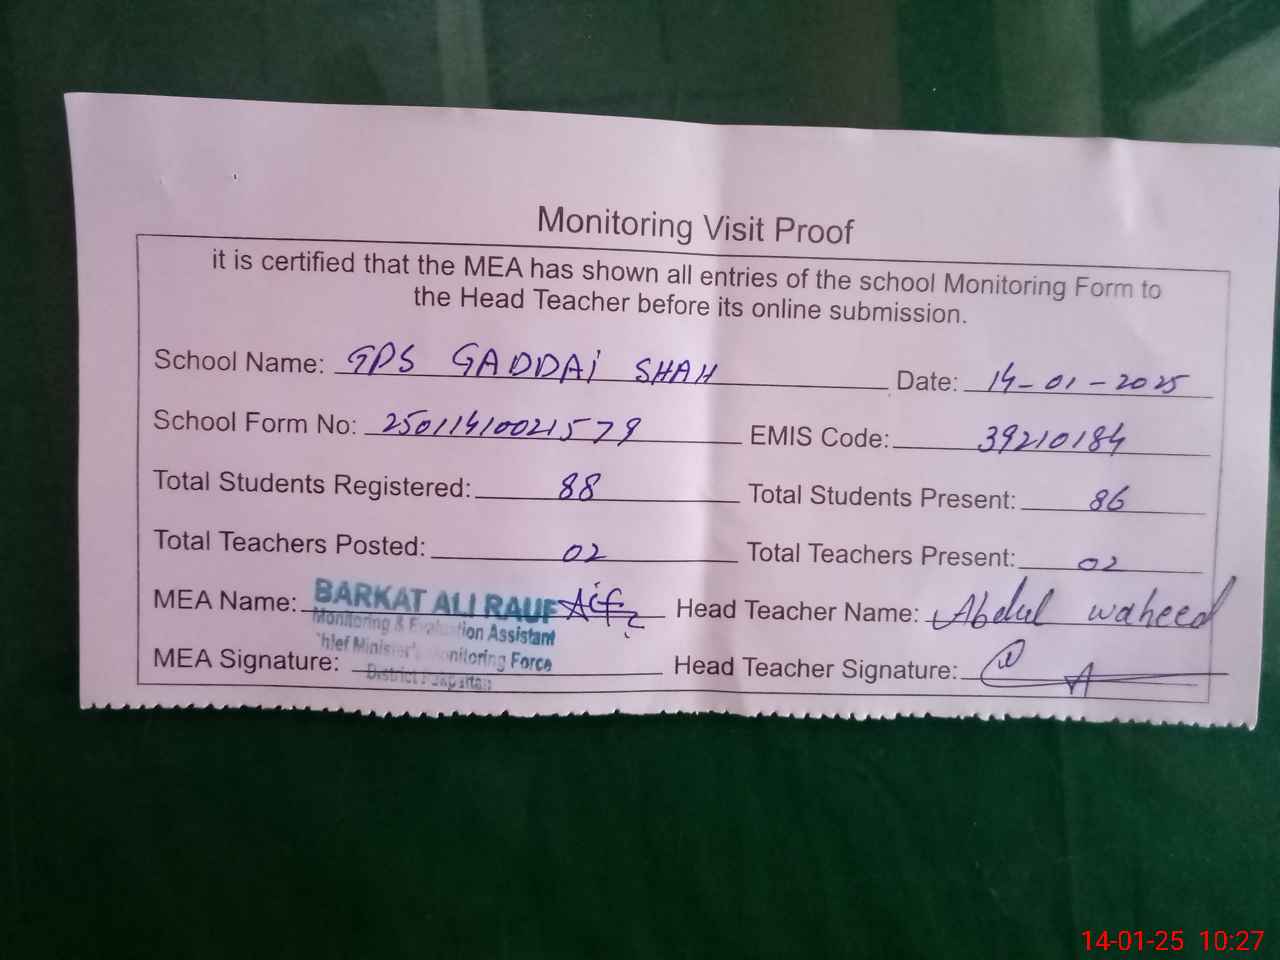 Monitoring Visit Proof
it is certified that the MEA has shown all entries of the school Monitoring Form to
the Head Teacher before its online submission.
School Name: GPS GADDAi SHAH Date: 14-01-2025
School Form No: 25011410021579 EMIS Code: 39210184
Total Students Registered: 88 Total Students Present: 86
Total Teachers Posted: 02 Total Teachers Present: 02
MEA Name: BARKAT ALI RAUF Head Teacher Name: Abdul waheed
Monitoring & Evaluation Assistant
Chief Minister's Monitoring Force
MEA Signature: Head Teacher Signature:
District Pakpattan
14-01-25 10:27